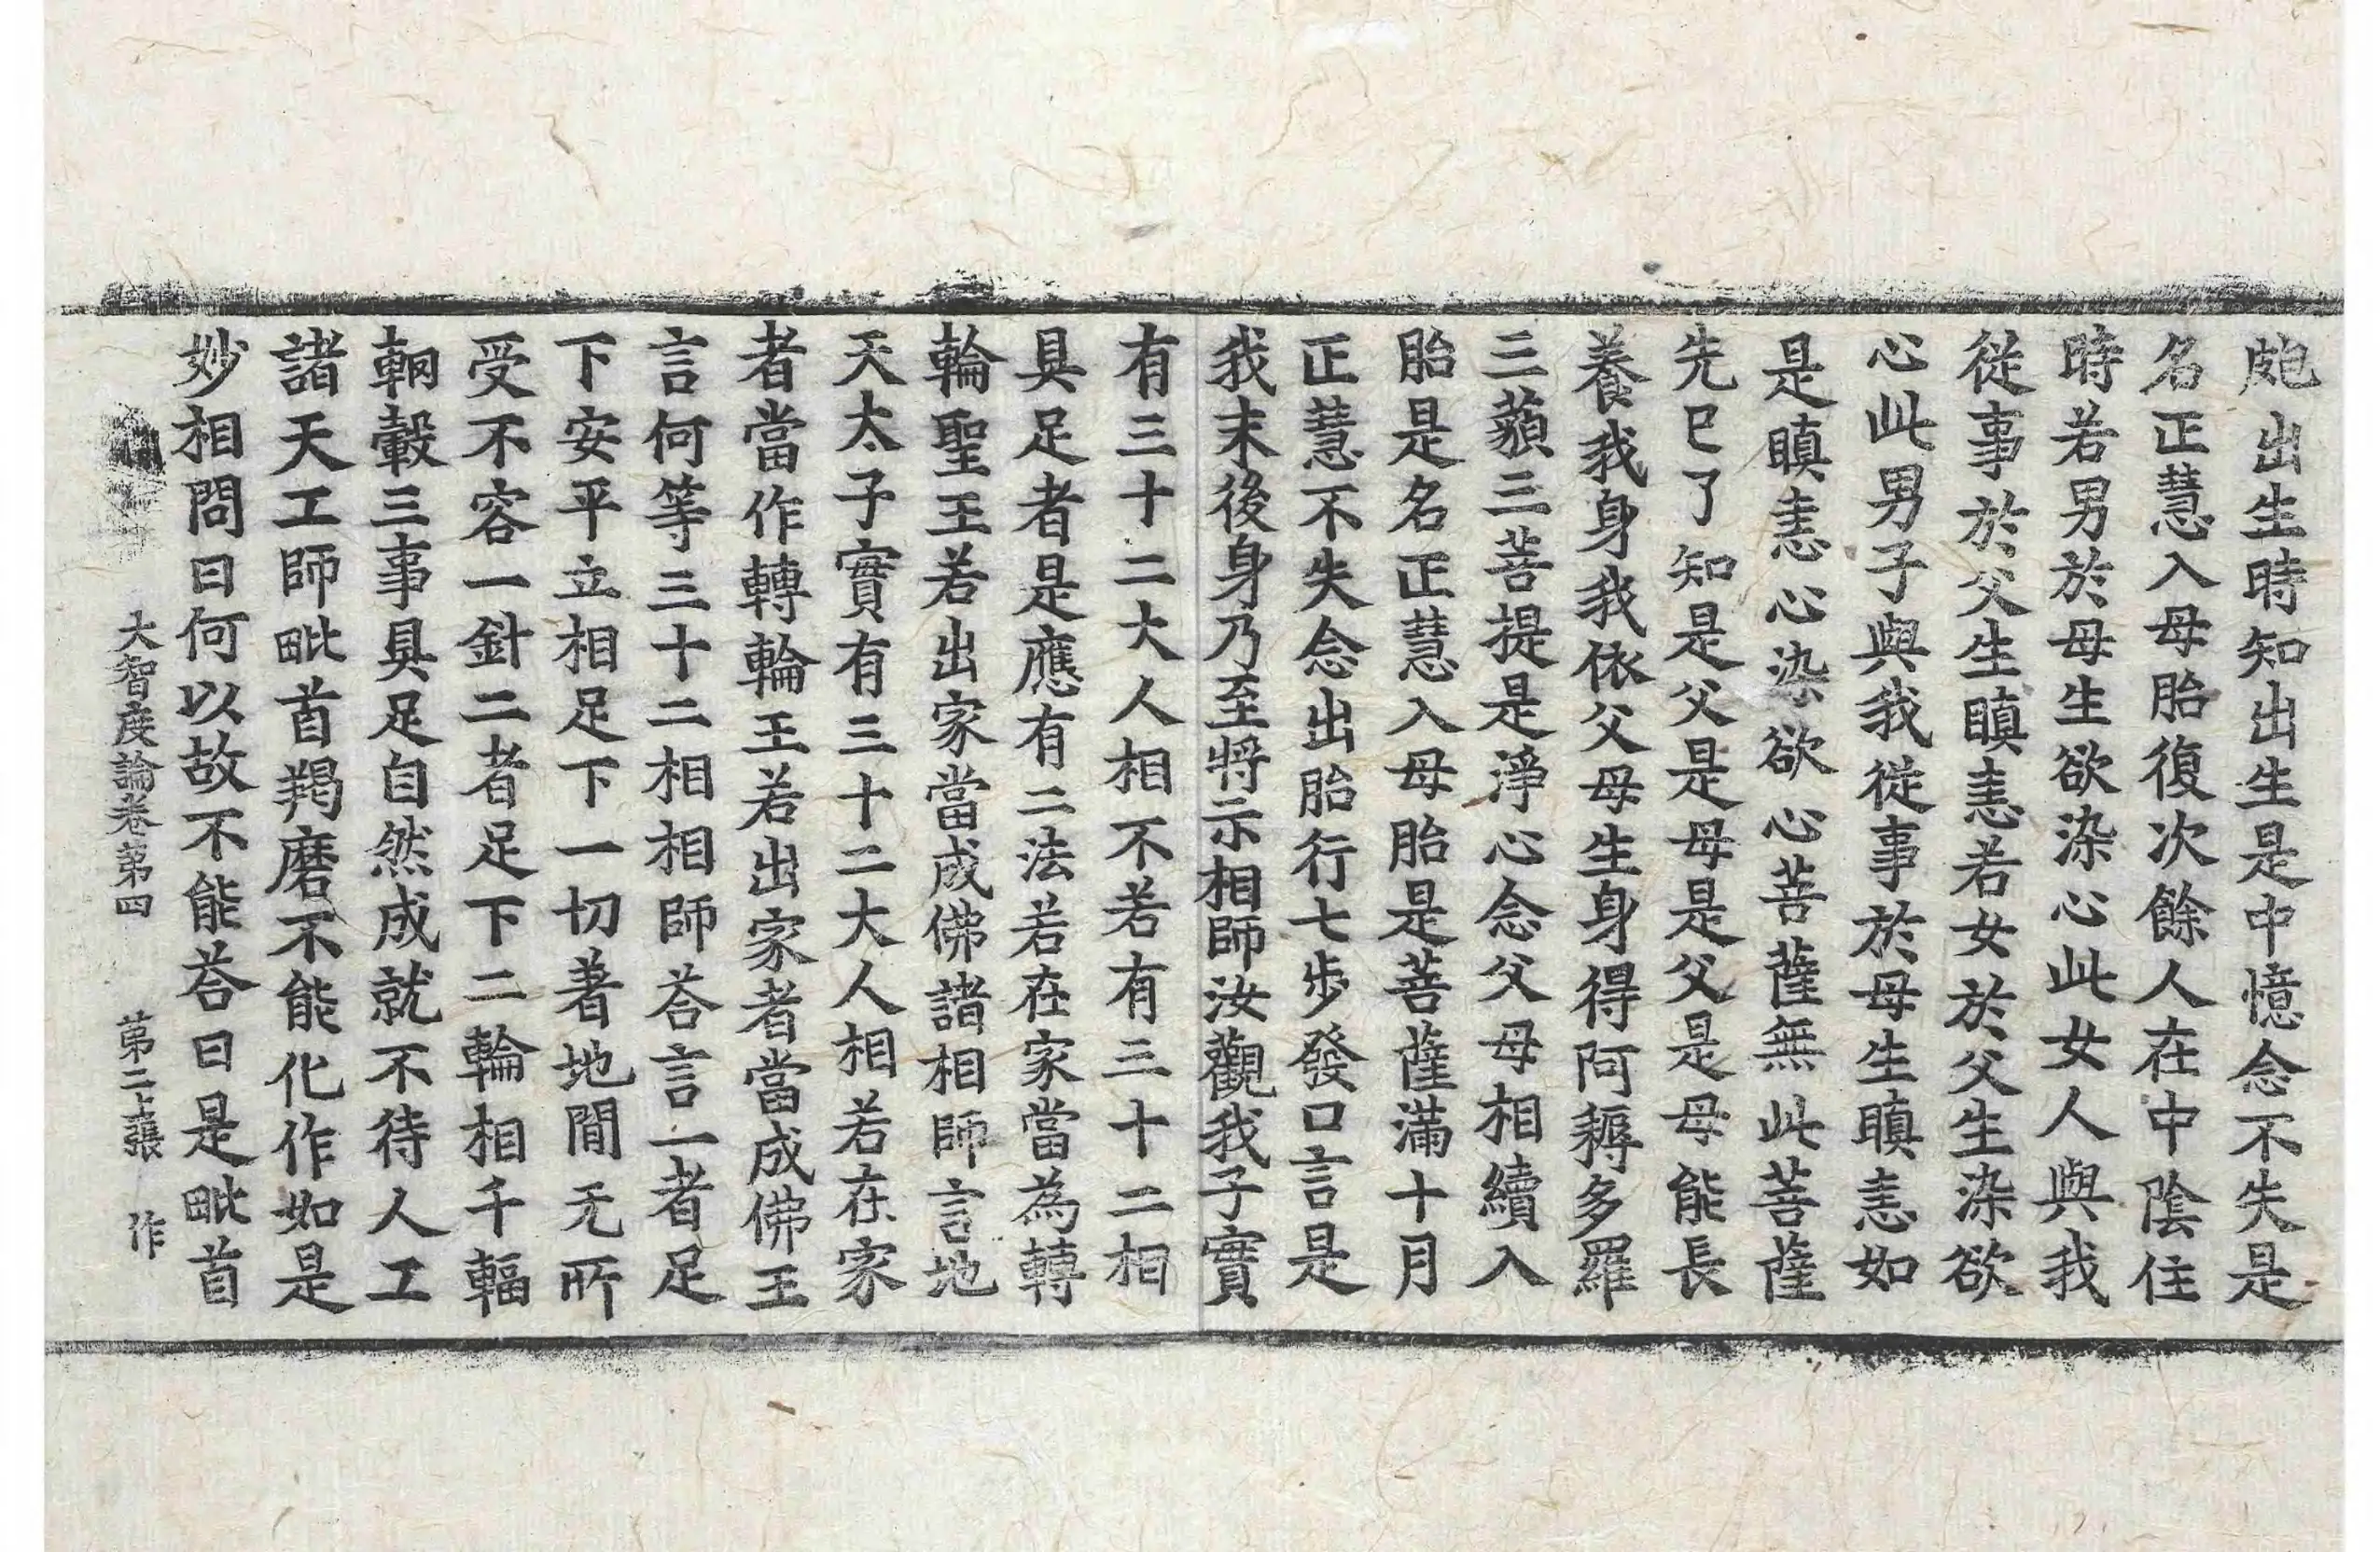 皰出生時知出生是中憶念不失是
名正慧入母胎復次餘人在中陰住
時若男於母生欲染心此女人與我
從事於父生瞋恚若女於父生染欲
心此男子與我從事於母生瞋恚如
是瞋恚心染欲心菩薩無此菩薩
先已了知是父是母是父是母能長
養我身我依父母生身得阿耨多羅
三藐三菩提是淨心念父母相續入
胎是名正慧入母胎是菩薩滿十月
正慧不失念出胎行七步發口言是
我末後身乃至將示相師汝觀我子實
有三十二大人相不若有三十二相
具足者是應有二法若在家當為轉
輪聖王若出家當成佛諸相師言地
天太子實有三十二大人相若在家
者當作轉輪王若出家者當成佛王
言何等三十二相相師荅言一者足
下安平立相足下一切著地閒无所
受不容一針二者足下二輪相千輻
輞轂三事具足自然成就不待人工
諸天工師毗首羯磨不能化作如是
妙相問曰何以故不能荅曰是毗首
大智度論卷第四 第二十張 作